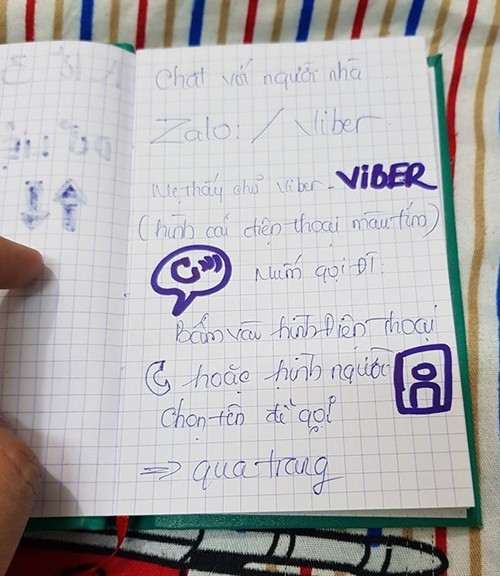 Chat với người nhà
Zalo: / Viber
Mẹ thấy chữ Viber - VIBER
(hình cái điện thoại màu tím)
Nhấn gọi ĐT
Bấm vào hình Điện thoại
hoặc hình người
Chọn tên để gọi
⇒ qua trang